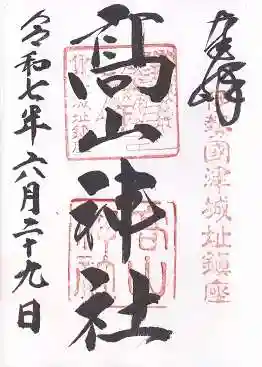 奉拝
勢國津城址鎮座
髙山神社
高山神社
令和七年六月二十九日